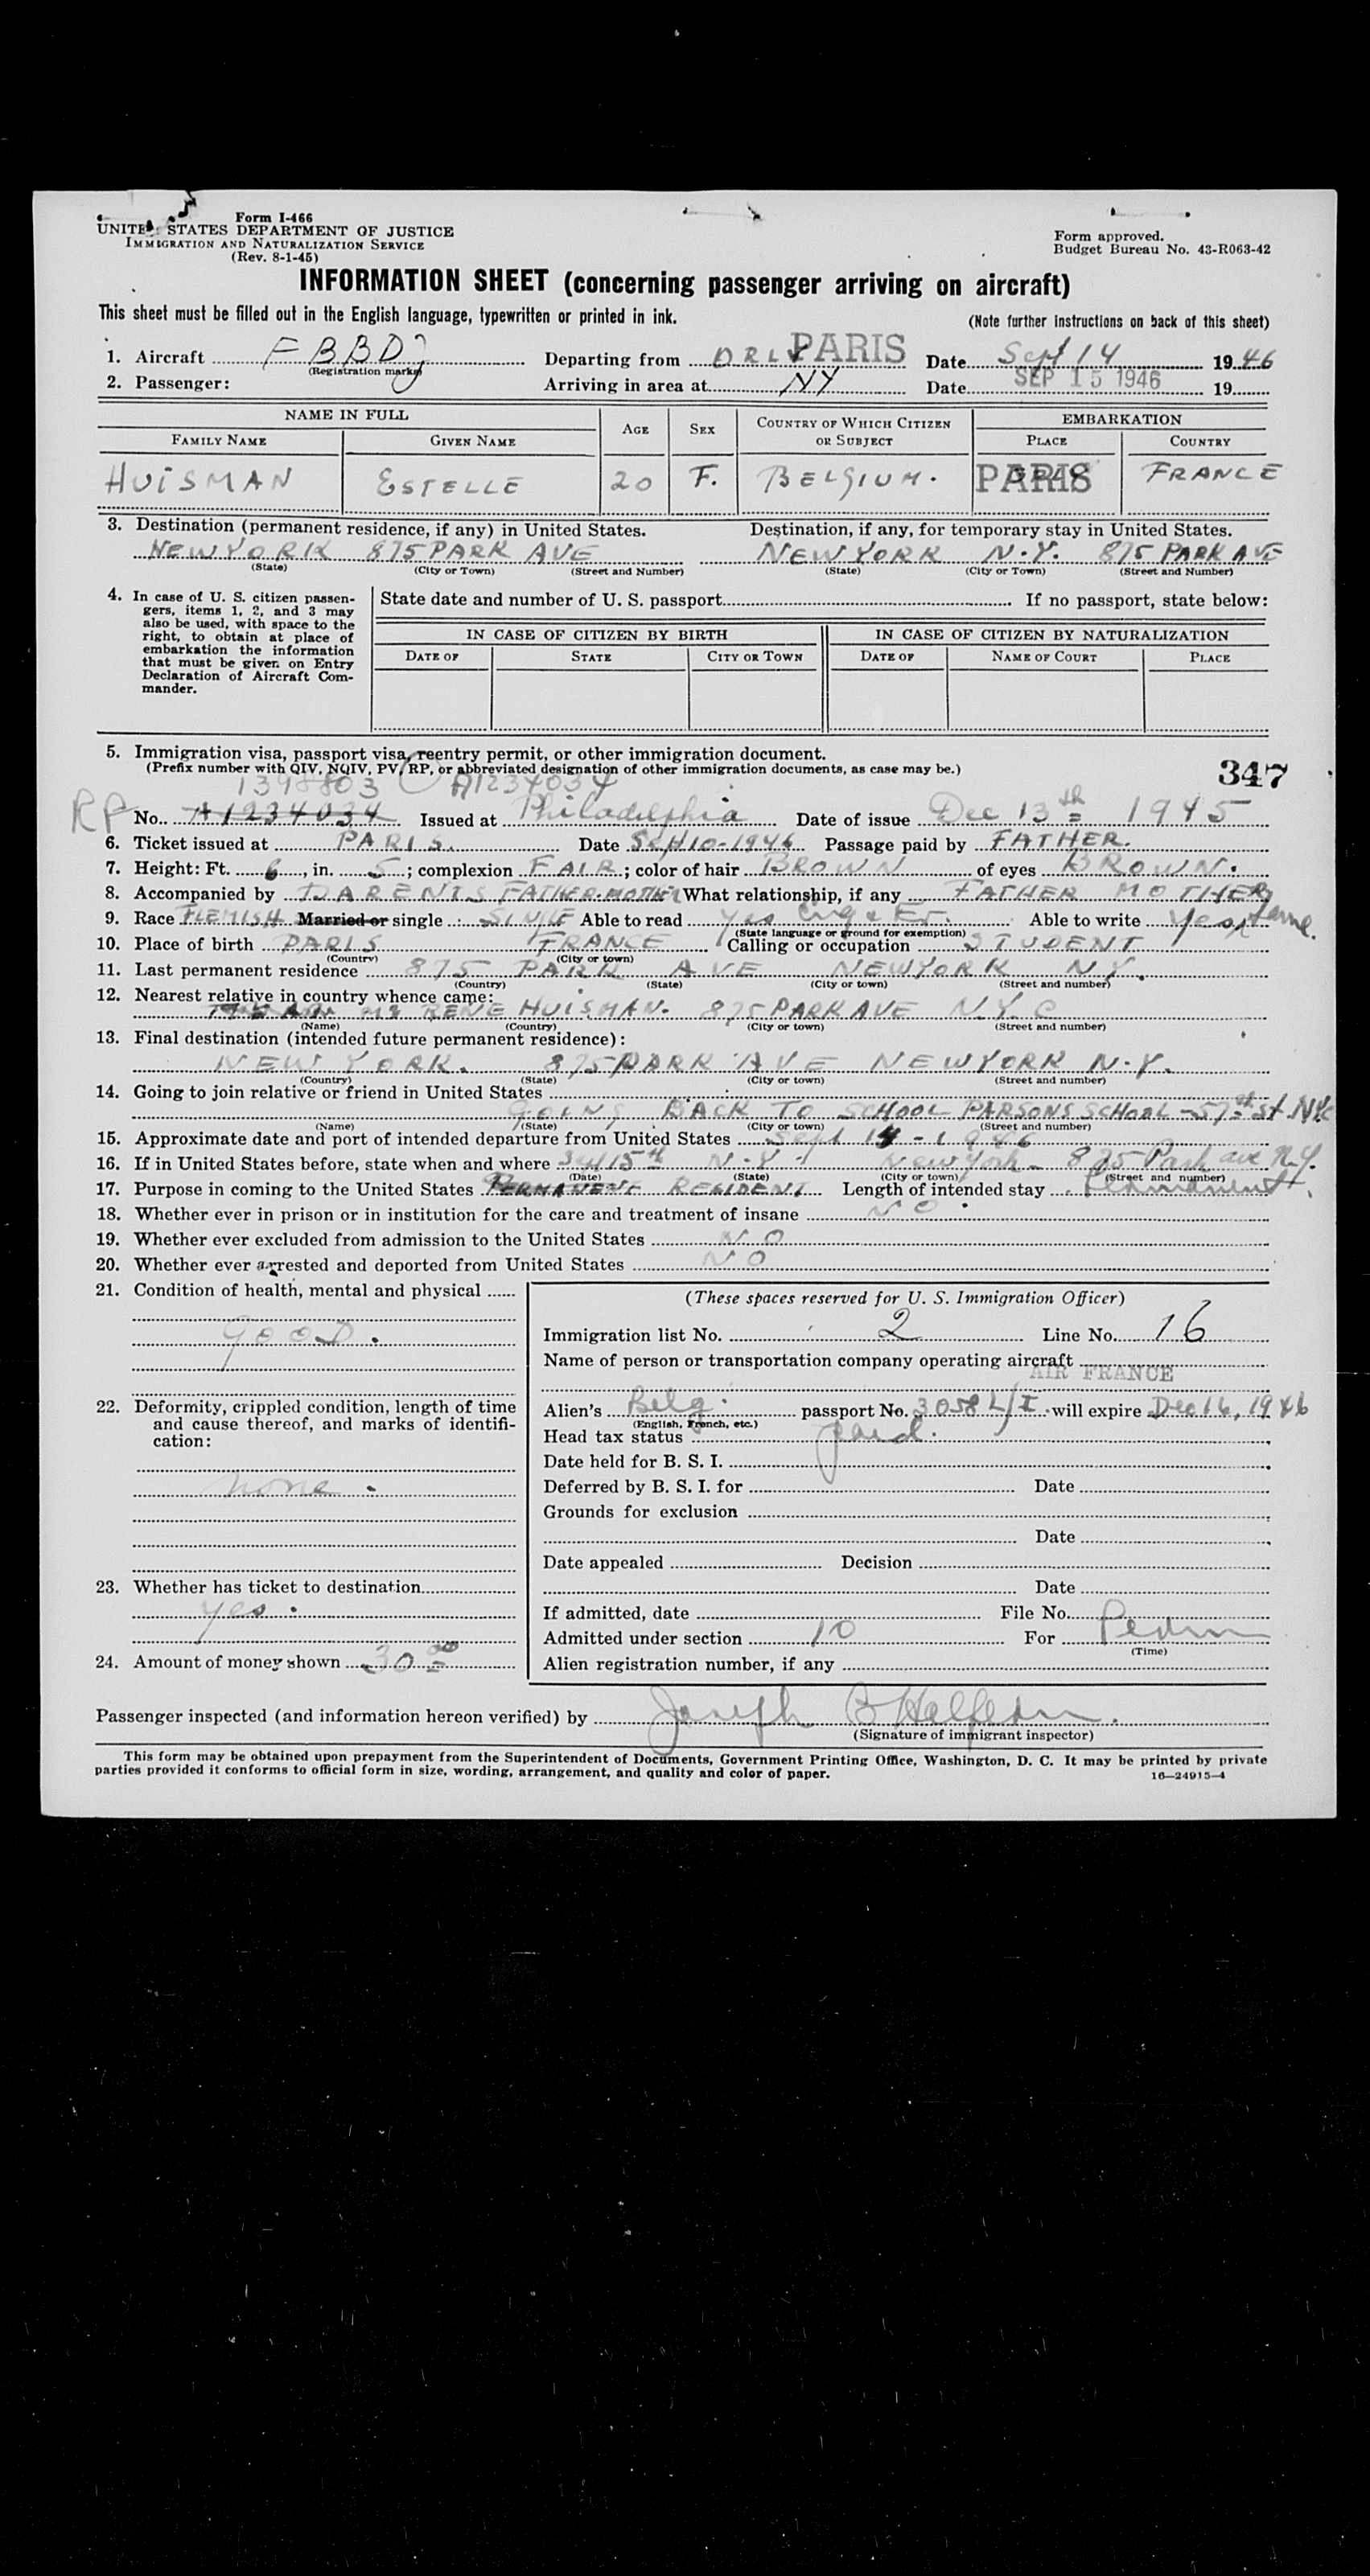 Form I-466
UNITED STATES DEPARTMENT OF JUSTICE
IMMIGRATION AND NATURALIZATION SERVICE
(Rev. 8-1-45)
Form approved.
Budget Bureau No. 43-R063-42
INFORMATION SHEET (concerning passenger arriving on aircraft)
This sheet must be filled out in the English language, typewritten or printed in ink.
(Note further instructions on back of this sheet)
1. Aircraft FBBD Departing from ORLY PARIS Date Sept 14 1946
(Registration marks)
2. Passenger: Arriving in area at NY Date SEP 15 1946 19
NAME IN FULL AGE SEX COUNTRY OF WHICH CITIZEN OR SUBJECT EMBARKATION
FAMILY NAME GIVEN NAME PLACE COUNTRY
HUISMAN ESTELLE 20 F. BELGIUM. PARIS FRANCE
3. Destination (permanent residence, if any) in United States. Destination, if any, for temporary stay in United States.
NEW YORK 875 PARK AVE NEW YORK N.Y. 875 PARK AVE
(State) (City or Town) (Street and Number) (State) (City or Town) (Street and Number)
4. In case of U. S. citizen passengers, items 1, 2, and 3 may also be used, with space to the right, to obtain at place of embarkation the information that must be given on Entry Declaration of Aircraft Commander.
State date and number of U. S. passport If no passport, state below:
IN CASE OF CITIZEN BY BIRTH IN CASE OF CITIZEN BY NATURALIZATION
DATE OF STATE CITY OR TOWN DATE OF NAME OF COURT PLACE
5. Immigration visa, passport visa, reentry permit, or other immigration document.
(Prefix number with QIV, NQIV, PV, RP, or abbreviated designation of other immigration documents, as case may be.)
347
1398803 A1234034
RP No. A1234034 Issued at Philadelphia Date of issue Dec 13th 1945
6. Ticket issued at PARIS. Date Sept 10-1946 Passage paid by FATHER.
7. Height: Ft. 6, in. 5; complexion FAIR; color of hair BROWN of eyes BROWN.
8. Accompanied by PARENTS FATHER-MOTHER What relationship, if any FATHER MOTHER
9. Race FLEMISH Married or single SINGLE Able to read yes Eng & Fr. Able to write yes same.
(State language or ground for exemption)
10. Place of birth PARIS FRANCE Calling or occupation STUDENT
(Country) (City or town)
11. Last permanent residence 875 PARK AVE NEW YORK N.Y.
(Country) (State) (City or town) (Street and number)
12. Nearest relative in country whence came:
RENE HUISMAN. 875 PARK AVE N.Y.C
(Name) (Country) (City or town) (Street and number)
13. Final destination (intended future permanent residence):
NEW YORK. 875 PARK AVE NEW YORK N.Y.
(Country) (State) (City or town) (Street and number)
14. Going to join relative or friend in United States
GOING BACK TO SCHOOL PARSONS SCHOOL - 57th St NYC
(Name) (State) (City or town) (Street and number)
15. Approximate date and port of intended departure from United States Sept 14 - 1946
16. If in United States before, state when and where N.Y. New York - 875 Park ave N.Y.
(Date) (State) (City or town) (Street and number)
17. Purpose in coming to the United States PERMANENT RESIDENT Length of intended stay Permanent.
18. Whether ever in prison or in institution for the care and treatment of insane NO.
19. Whether ever excluded from admission to the United States NO
20. Whether ever arrested and deported from United States NO
21. Condition of health, mental and physical
GOOD.
22. Deformity, crippled condition, length of time and cause thereof, and marks of identification:
none.
23. Whether has ticket to destination
yes.
24. Amount of money shown 30 00
(These spaces reserved for U. S. Immigration Officer)
Immigration list No. 2 Line No. 16
Name of person or transportation company operating aircraft
AIR FRANCE
Alien's Belg. passport No. 3058 L/I will expire Dec 16, 1946
(English, French, etc.)
Head tax status paid.
Date held for B. S. I.
Deferred by B. S. I. for Date
Grounds for exclusion
Date
Date appealed Decision
Date
If admitted, date File No.
Admitted under section 10 For Perm
(Time)
Alien registration number, if any
Passenger inspected (and information hereon verified) by Joseph B Halpern.
(Signature of immigrant inspector)
This form may be obtained upon prepayment from the Superintendent of Documents, Government Printing Office, Washington, D. C. It may be printed by private
parties provided it conforms to official form in size, wording, arrangement, and quality and color of paper.
16—24915-4